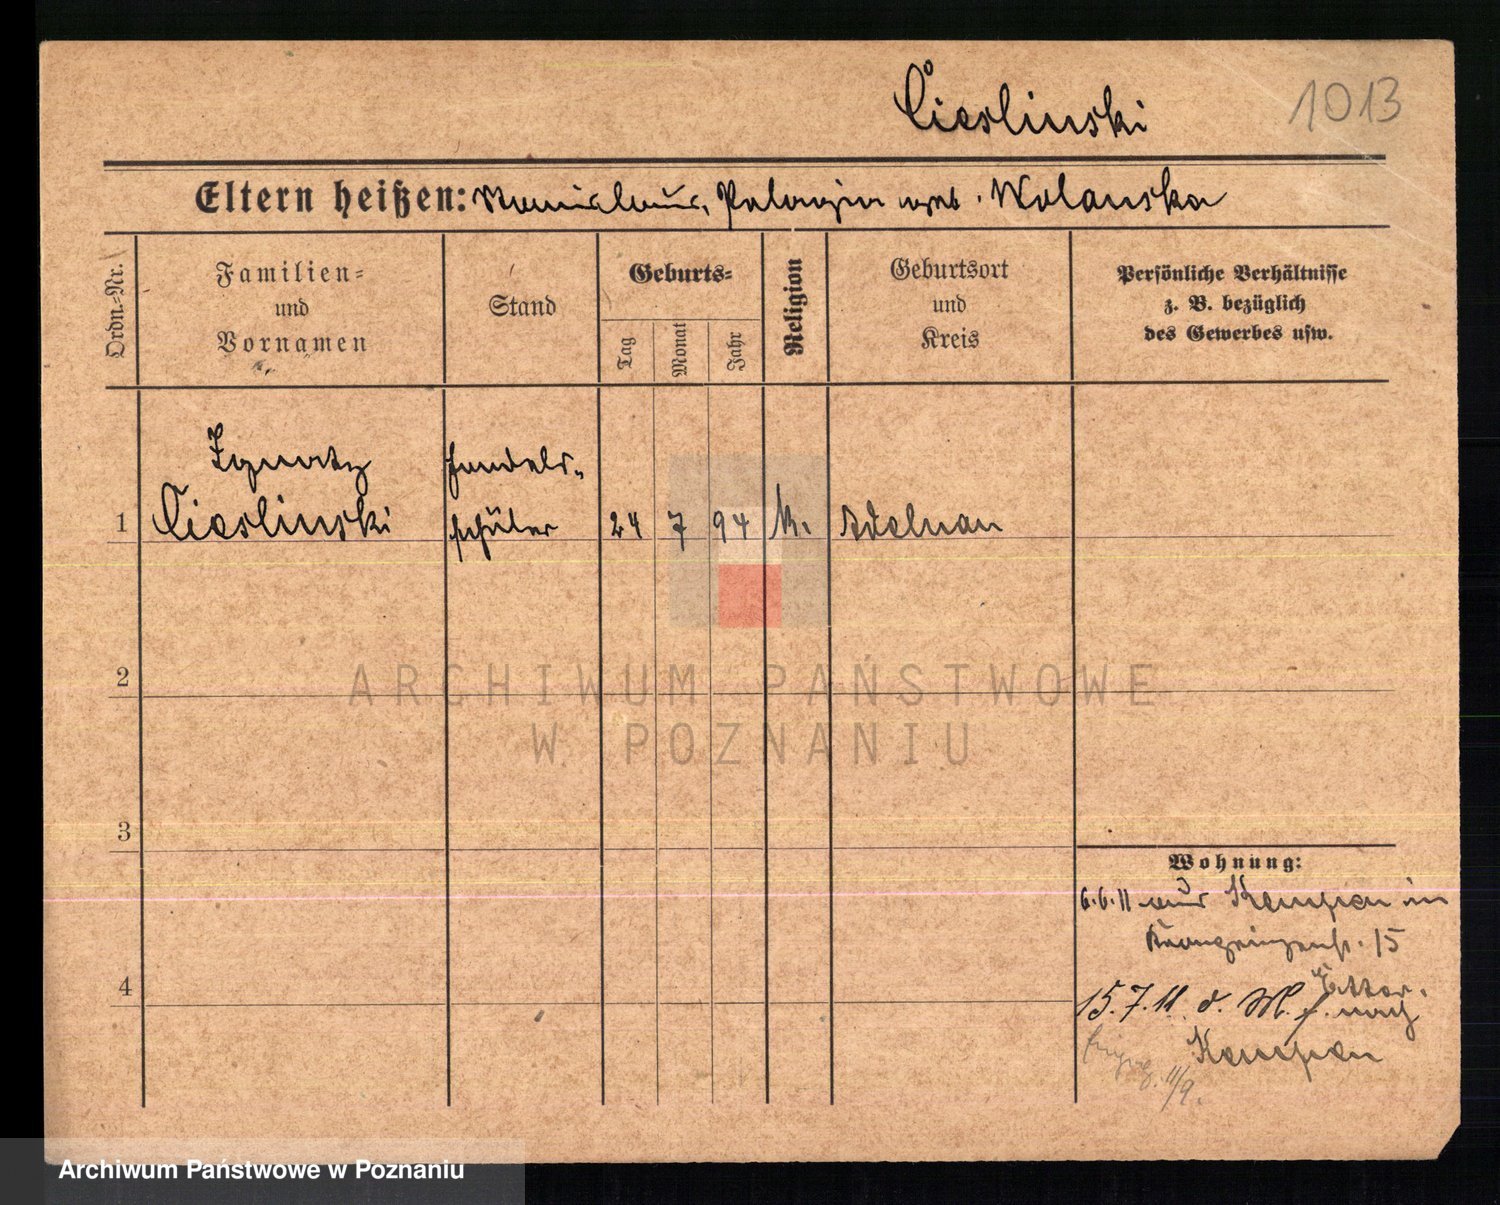 Cieslinski
1013
Eltern heißen: Stanislaus, Pelagia geb. Wolanska
Ordn.-Nr.
Familien-
und
Vornamen
Stand
Geburts-
Tag
Monat
Jahr
Religion
Geburtsort
und
Kreis
Persönliche Verhältnisse
z. B. bezüglich
des Gewerbes usw.
1
Ignatz
Cieslinski
Handels-
schüler
24 7 94 k. Adelnau
2
3
4
Wohnung:
6.6.11 aus Kempen in
15
15.7.11 d. M. f. nach
Kempen
11/9.
ARCHIWUM PAŃSTWOWE
W POZNANIU
Archiwum Państwowe w Poznaniu